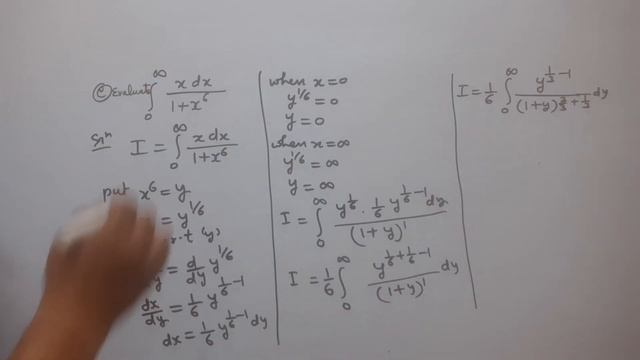 (c) Evaluate ∫₀^∞ x dx / (1+x⁶)
Solⁿ I = ∫₀^∞ x dx / (1+x⁶)
put x⁶ = y
= y^(1/6)
r.t (y)
y = d/dy y^(1/6)
dx/dy = 1/6 y^(1/6 −1)
dx = 1/6 y^(1/6 −1) dy
when x=0
y^(1/6) = 0
y = 0
when x=∞
y^(1/6) = ∞
y = ∞
I = ∫₀^∞ y^(1/6) · 1/6 y^(1/6 −1) dy / (1+y)¹
I = 1/6 ∫₀^∞ y^(1/6 + 1/6 −1) / (1+y)¹ dy
I = 1/6 ∫₀^∞ y^(1/3 −1) / (1+y)^(2/3 + 1/3) dy